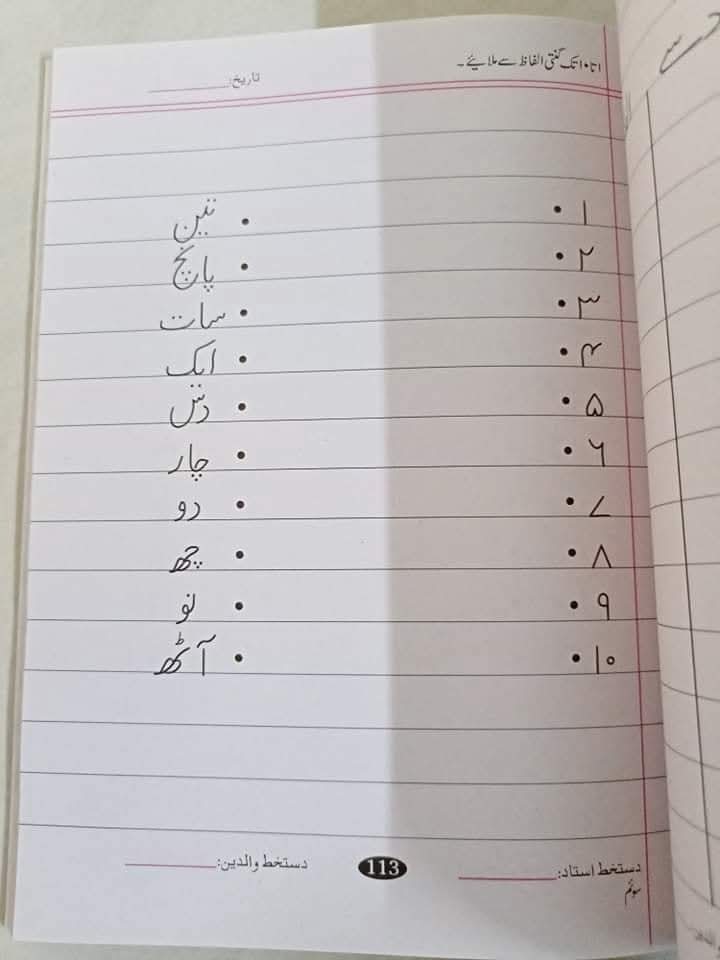 ۱ تا ۱۰ تک گنتی الفاظ سے ملائیے۔
تاریخ:
۱ • • تین
۲ • • پانچ
۳ • • سات
۴ • • ایک
۵ • • دس
۶ • • چار
۷ • • دو
۸ • • چھ
۹ • • نو
۱۰ • • آٹھ
دستخط استاد: 113 دستخط والدین:
سوئم